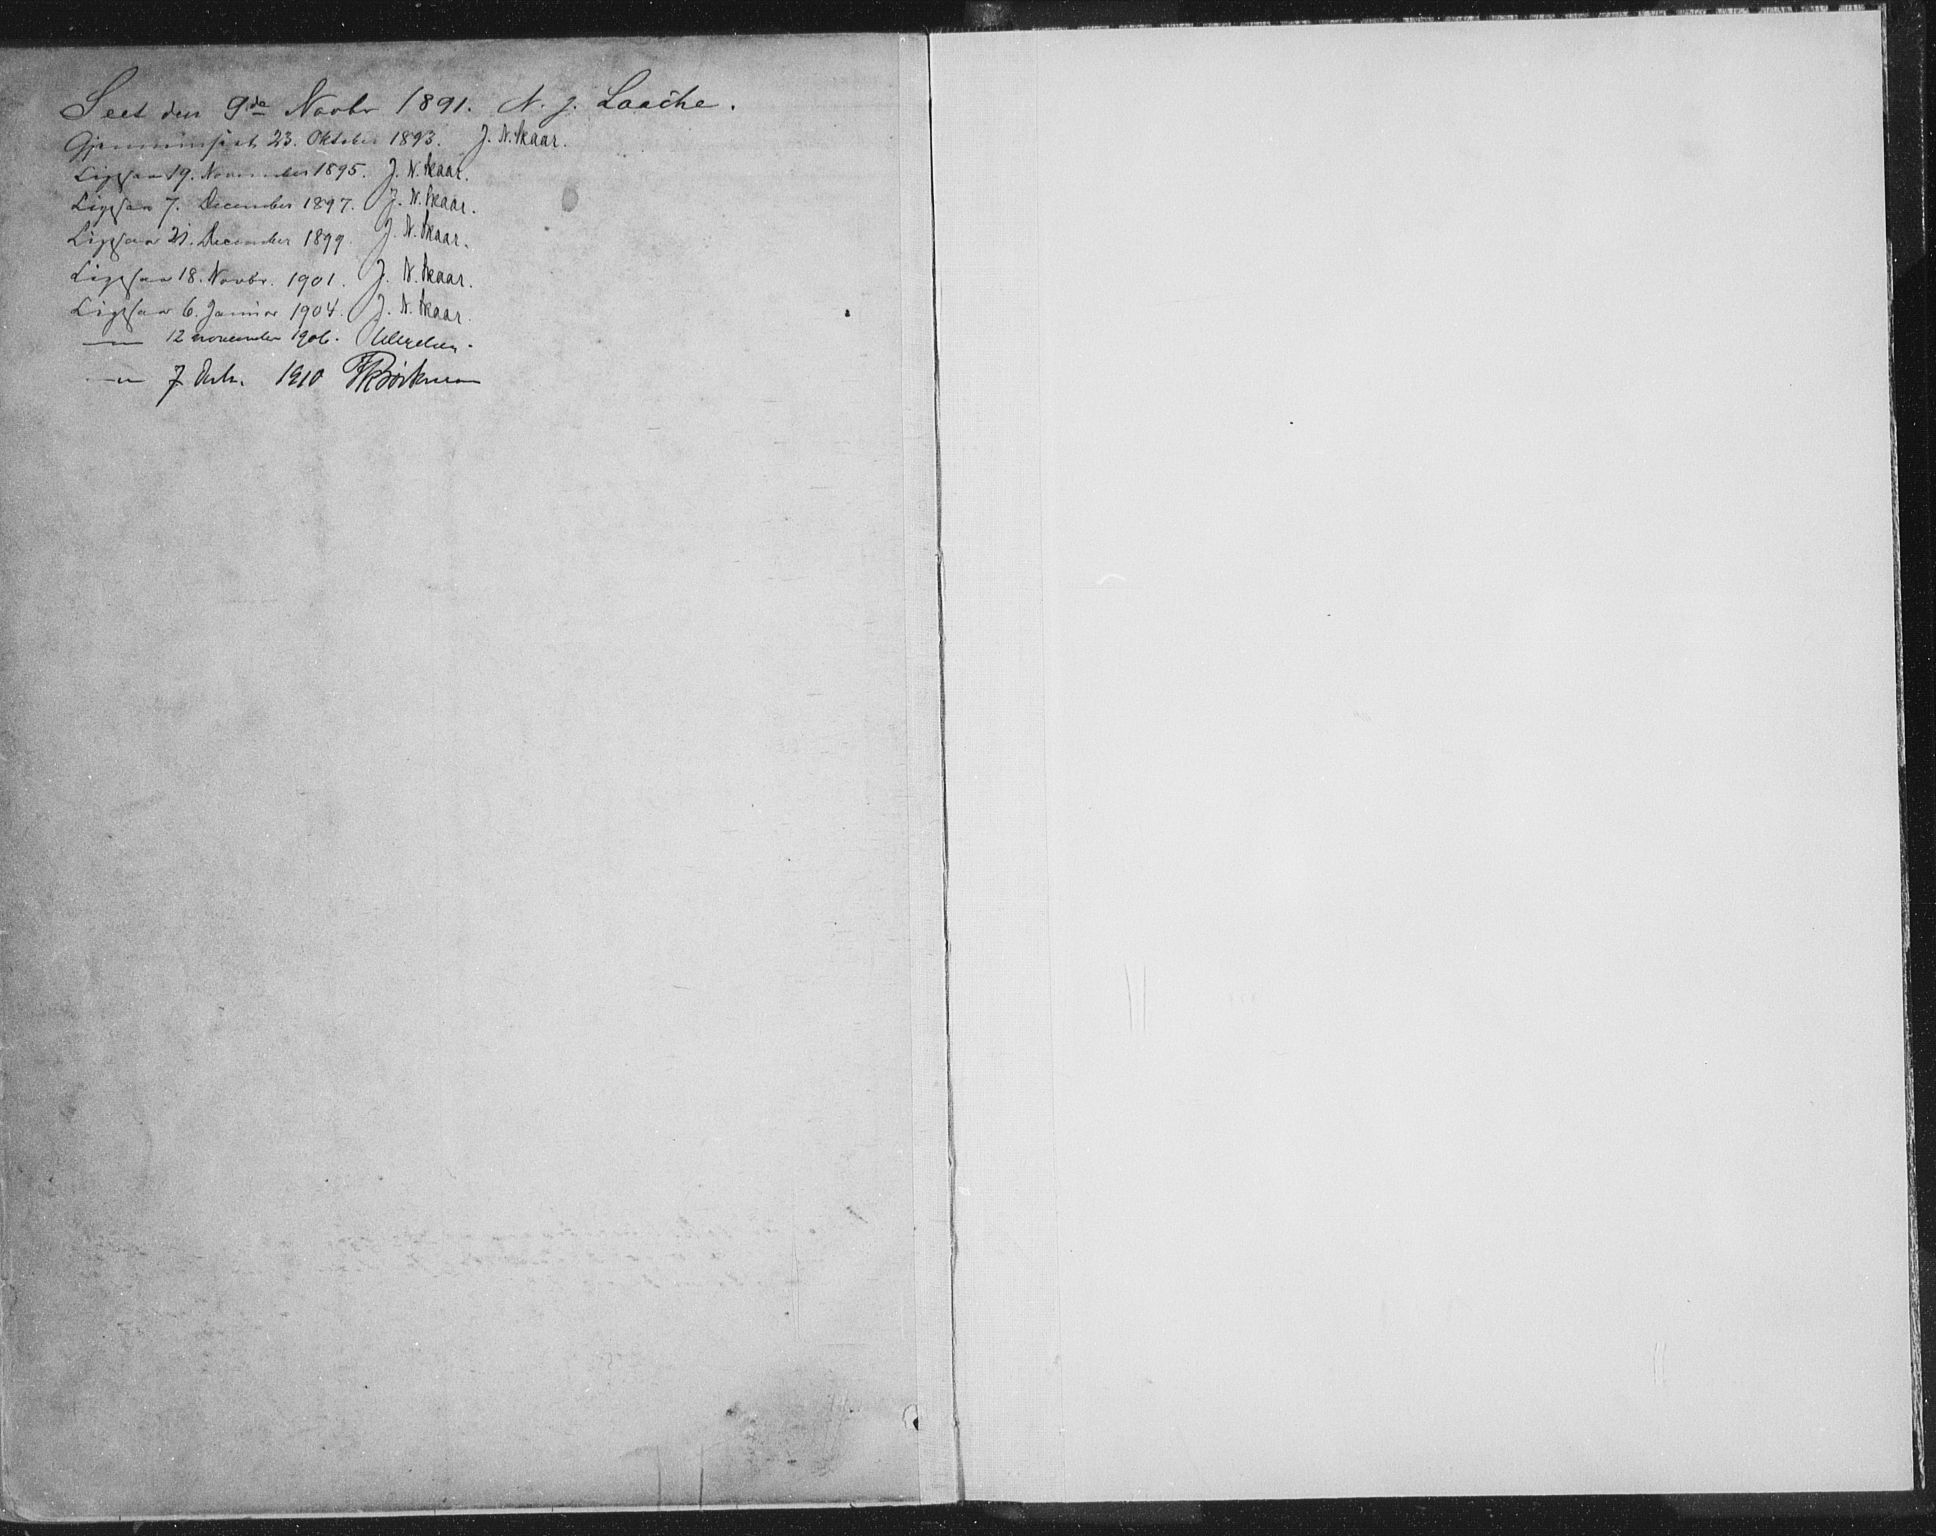 Seet den 9de Novbr 1891. N. J. Laache.
Gjennemseet 23. Oktober 1893. J. N. Skaar.
Ligesaa 19. November 1895. J. N. Skaar.
Ligesaa 7. December 1897. J. N. Skaar.
Ligesaa 21. December 1899. J. N. Skaar.
Ligesaa 18. Novbr. 1901. J. N. Skaar.
Ligesaa 6. Januar 1904. J. N. Skaar.
—"— 12 november 1906. Wexelsen.
—"— 7 1910 Böckman